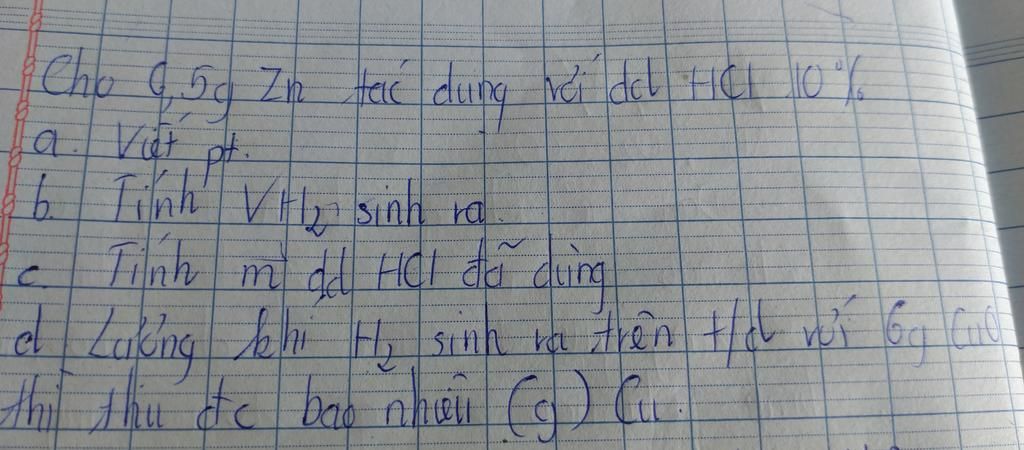 Cho 9,5g Zn tác dụng với dd HCl 10%
a. Viết pt.
b. Tính VH₂ sinh ra.
c. Tính m dd HCl đã dùng
d Lượng khí H₂ sinh ra trên t/d với 6g CuO
thì thu đc bao nhiêu (g) Cu.